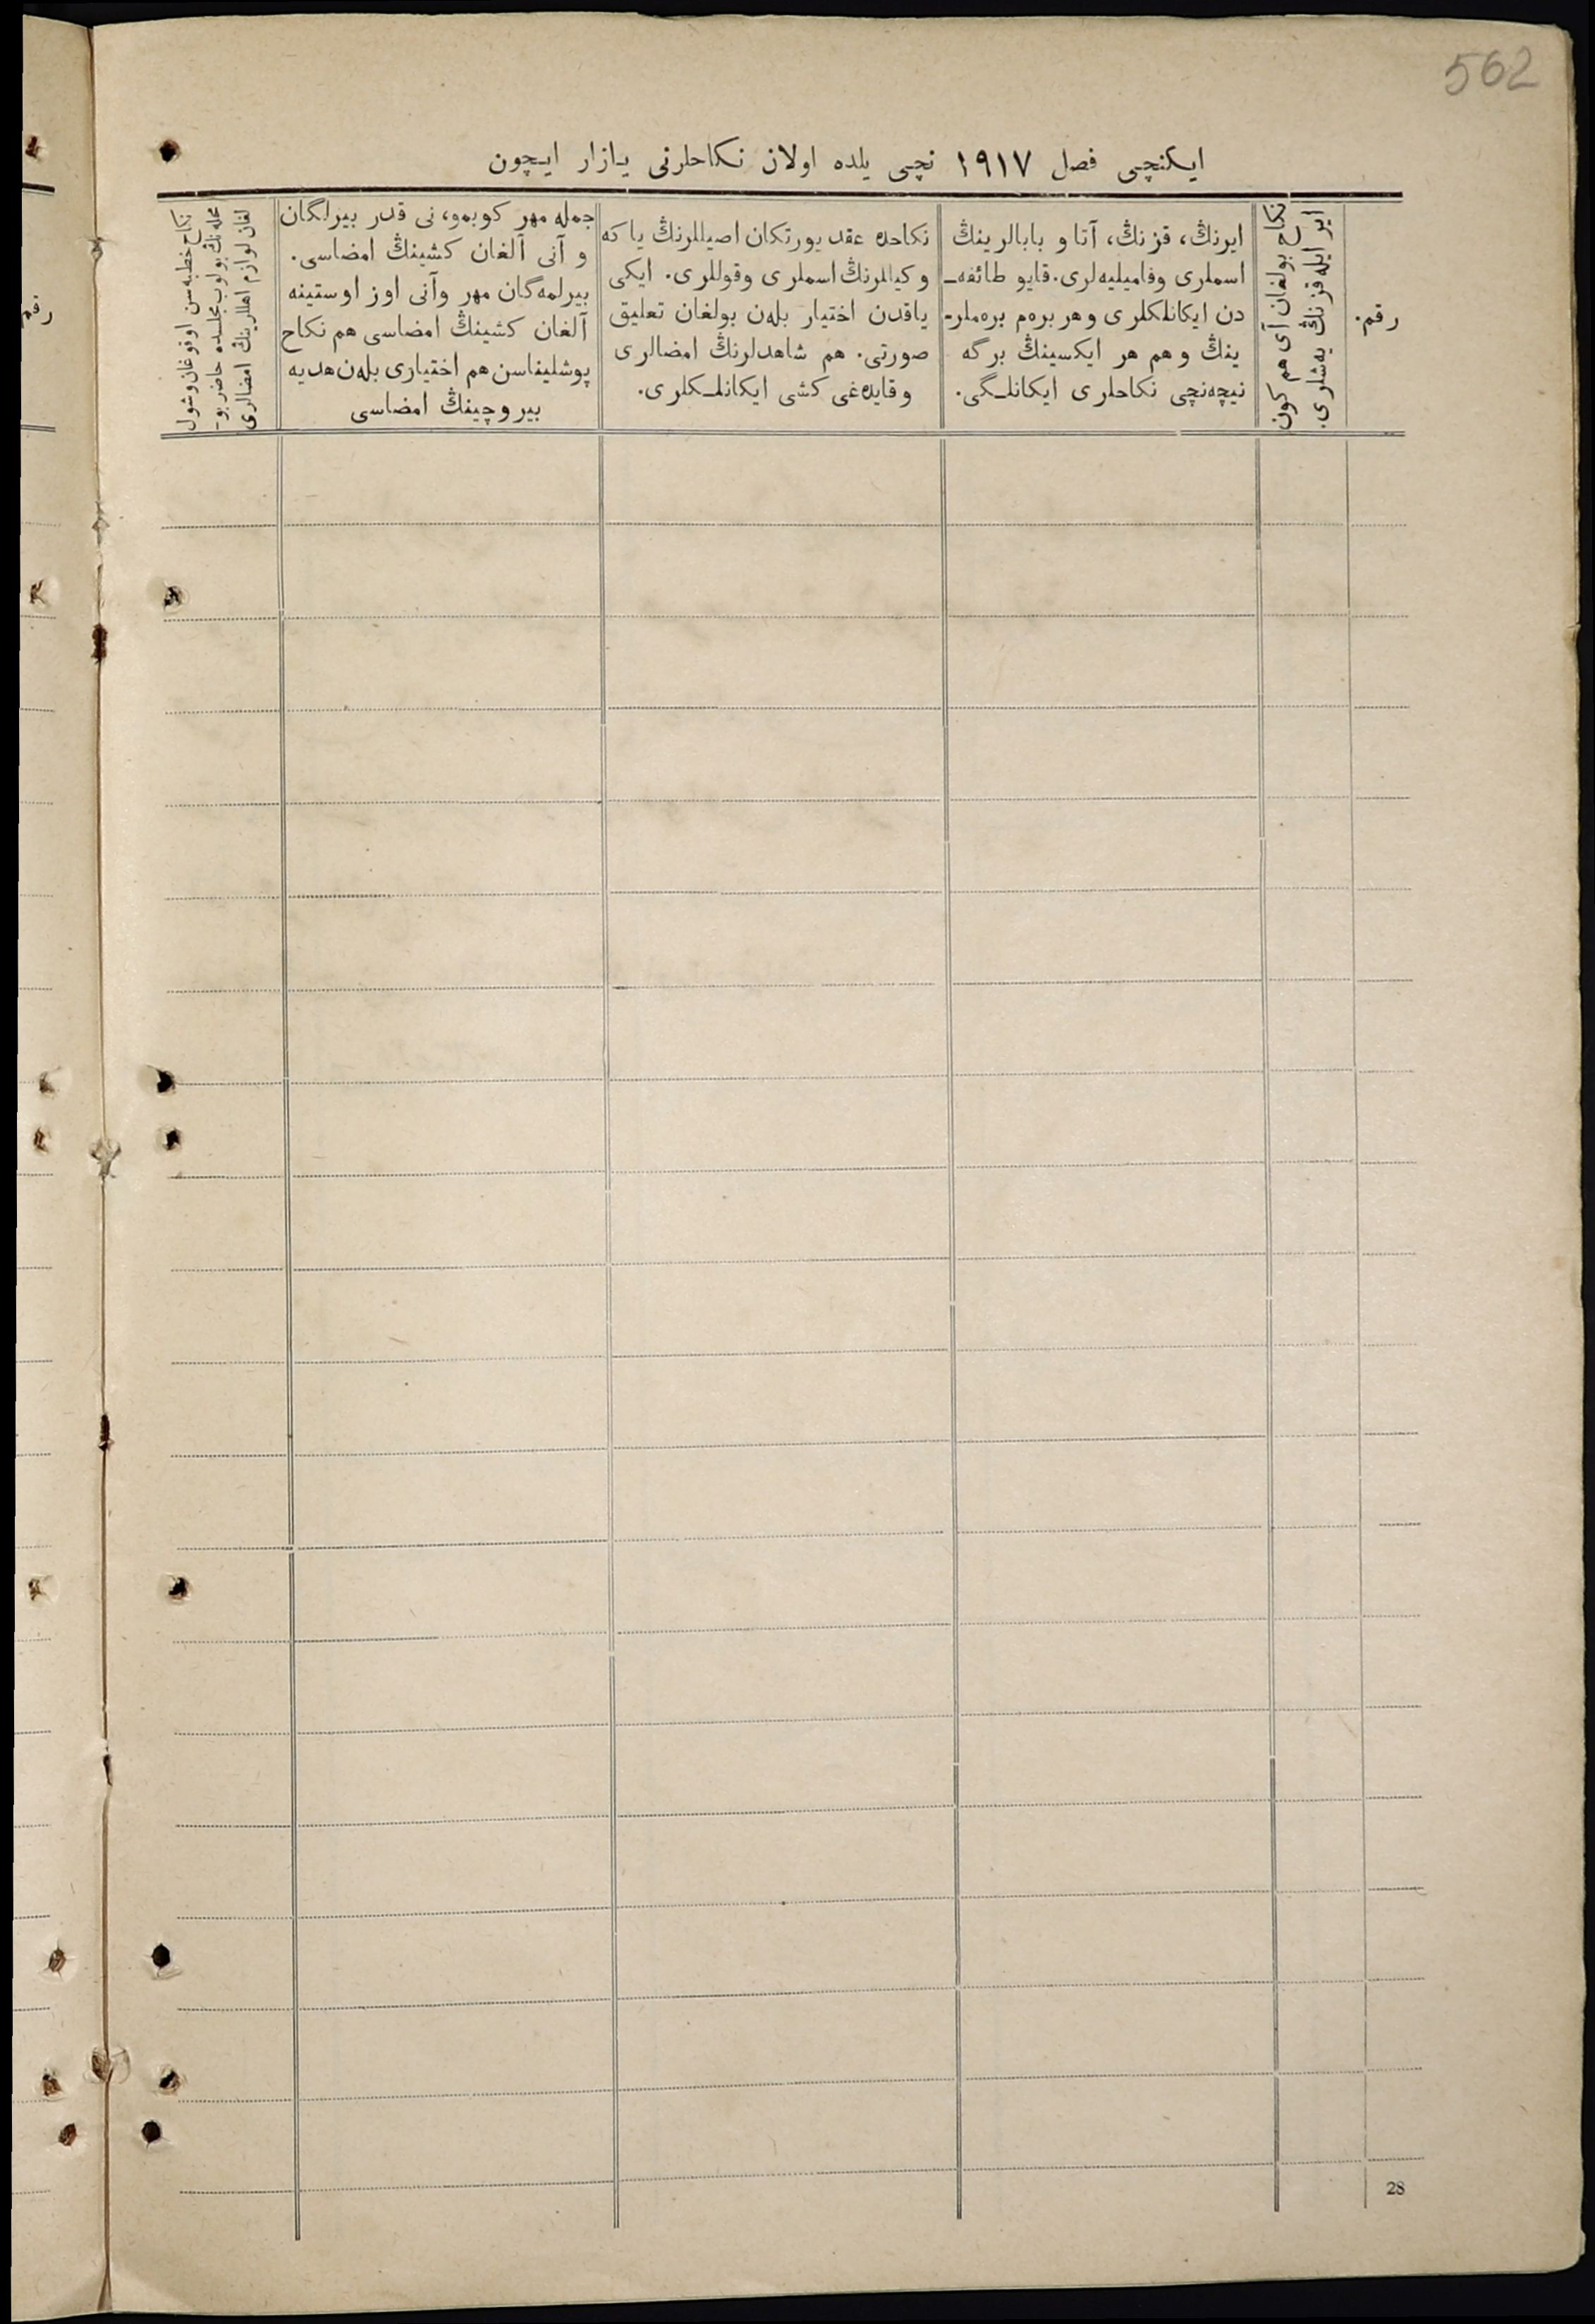 562
ایکنچی فصل ١٩١٧ نچی یلده اولان نکاحلرنی یازار ایچون
رقم.
نکاح بولغان آی هم کون
ایر ایله قز نڭ یه‌شلری.
ایرنڭ، قز نڭ، آتا و بابالرینڭ
اسملری وفامیلیه‌لری. قایو طائفه‌ـ
دن ایکانلکلری و هر بره‌م بره‌ملر-
ینڭ و هم هر ایکسینڭ برگه
نیچه‌نچی نکاحلری ایکانلـگی.
نکاحده عقد یورتکان اصیللرنڭ یا که
و کیللرنڭ اسملری وقوللری. ایکی
یاقدن اختیار بله‌ن بولغان تعلیق
صورتی. هم شاهدلرنڭ امضالری
وقایده‌غی کشی ایکانلـکلری.
جمله مهر کوبمو، نی قدر بیرلگان
و آنی آلغان کشینڭ امضاسی.
بیرلمه‌گان مهر وآنی اوز اوستینه
آلغان کشینڭ امضاسی هم نکاح
پوشلیناسن هم اختیاری بله‌ن هدیه
بیروچینڭ امضاسی
نکاح خطبه سن اوقوغان وشول
محله نڭ بولوب مجلسده حاضر بو-
لغان لوازم اهللرینڭ امضالری
رقم
28